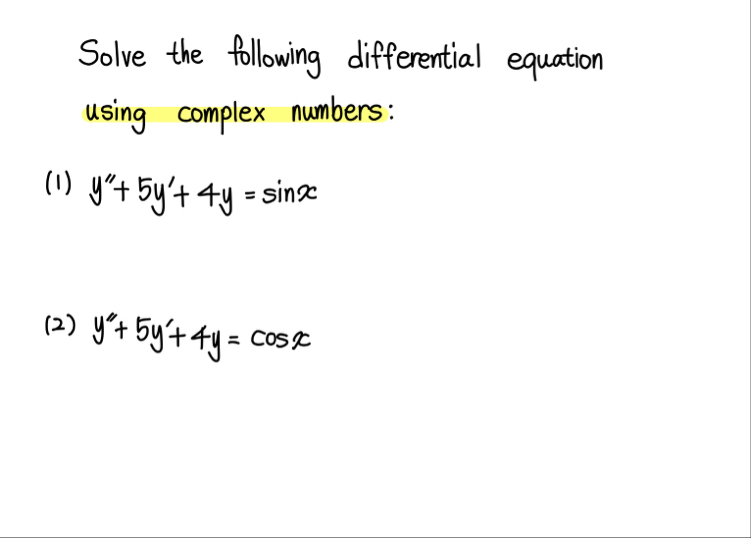 Solve the following differential equation
using complex numbers:
(1) y"+ 5y'+ 4y = sinx
(2) y"+ 5y'+ 4y = cosx